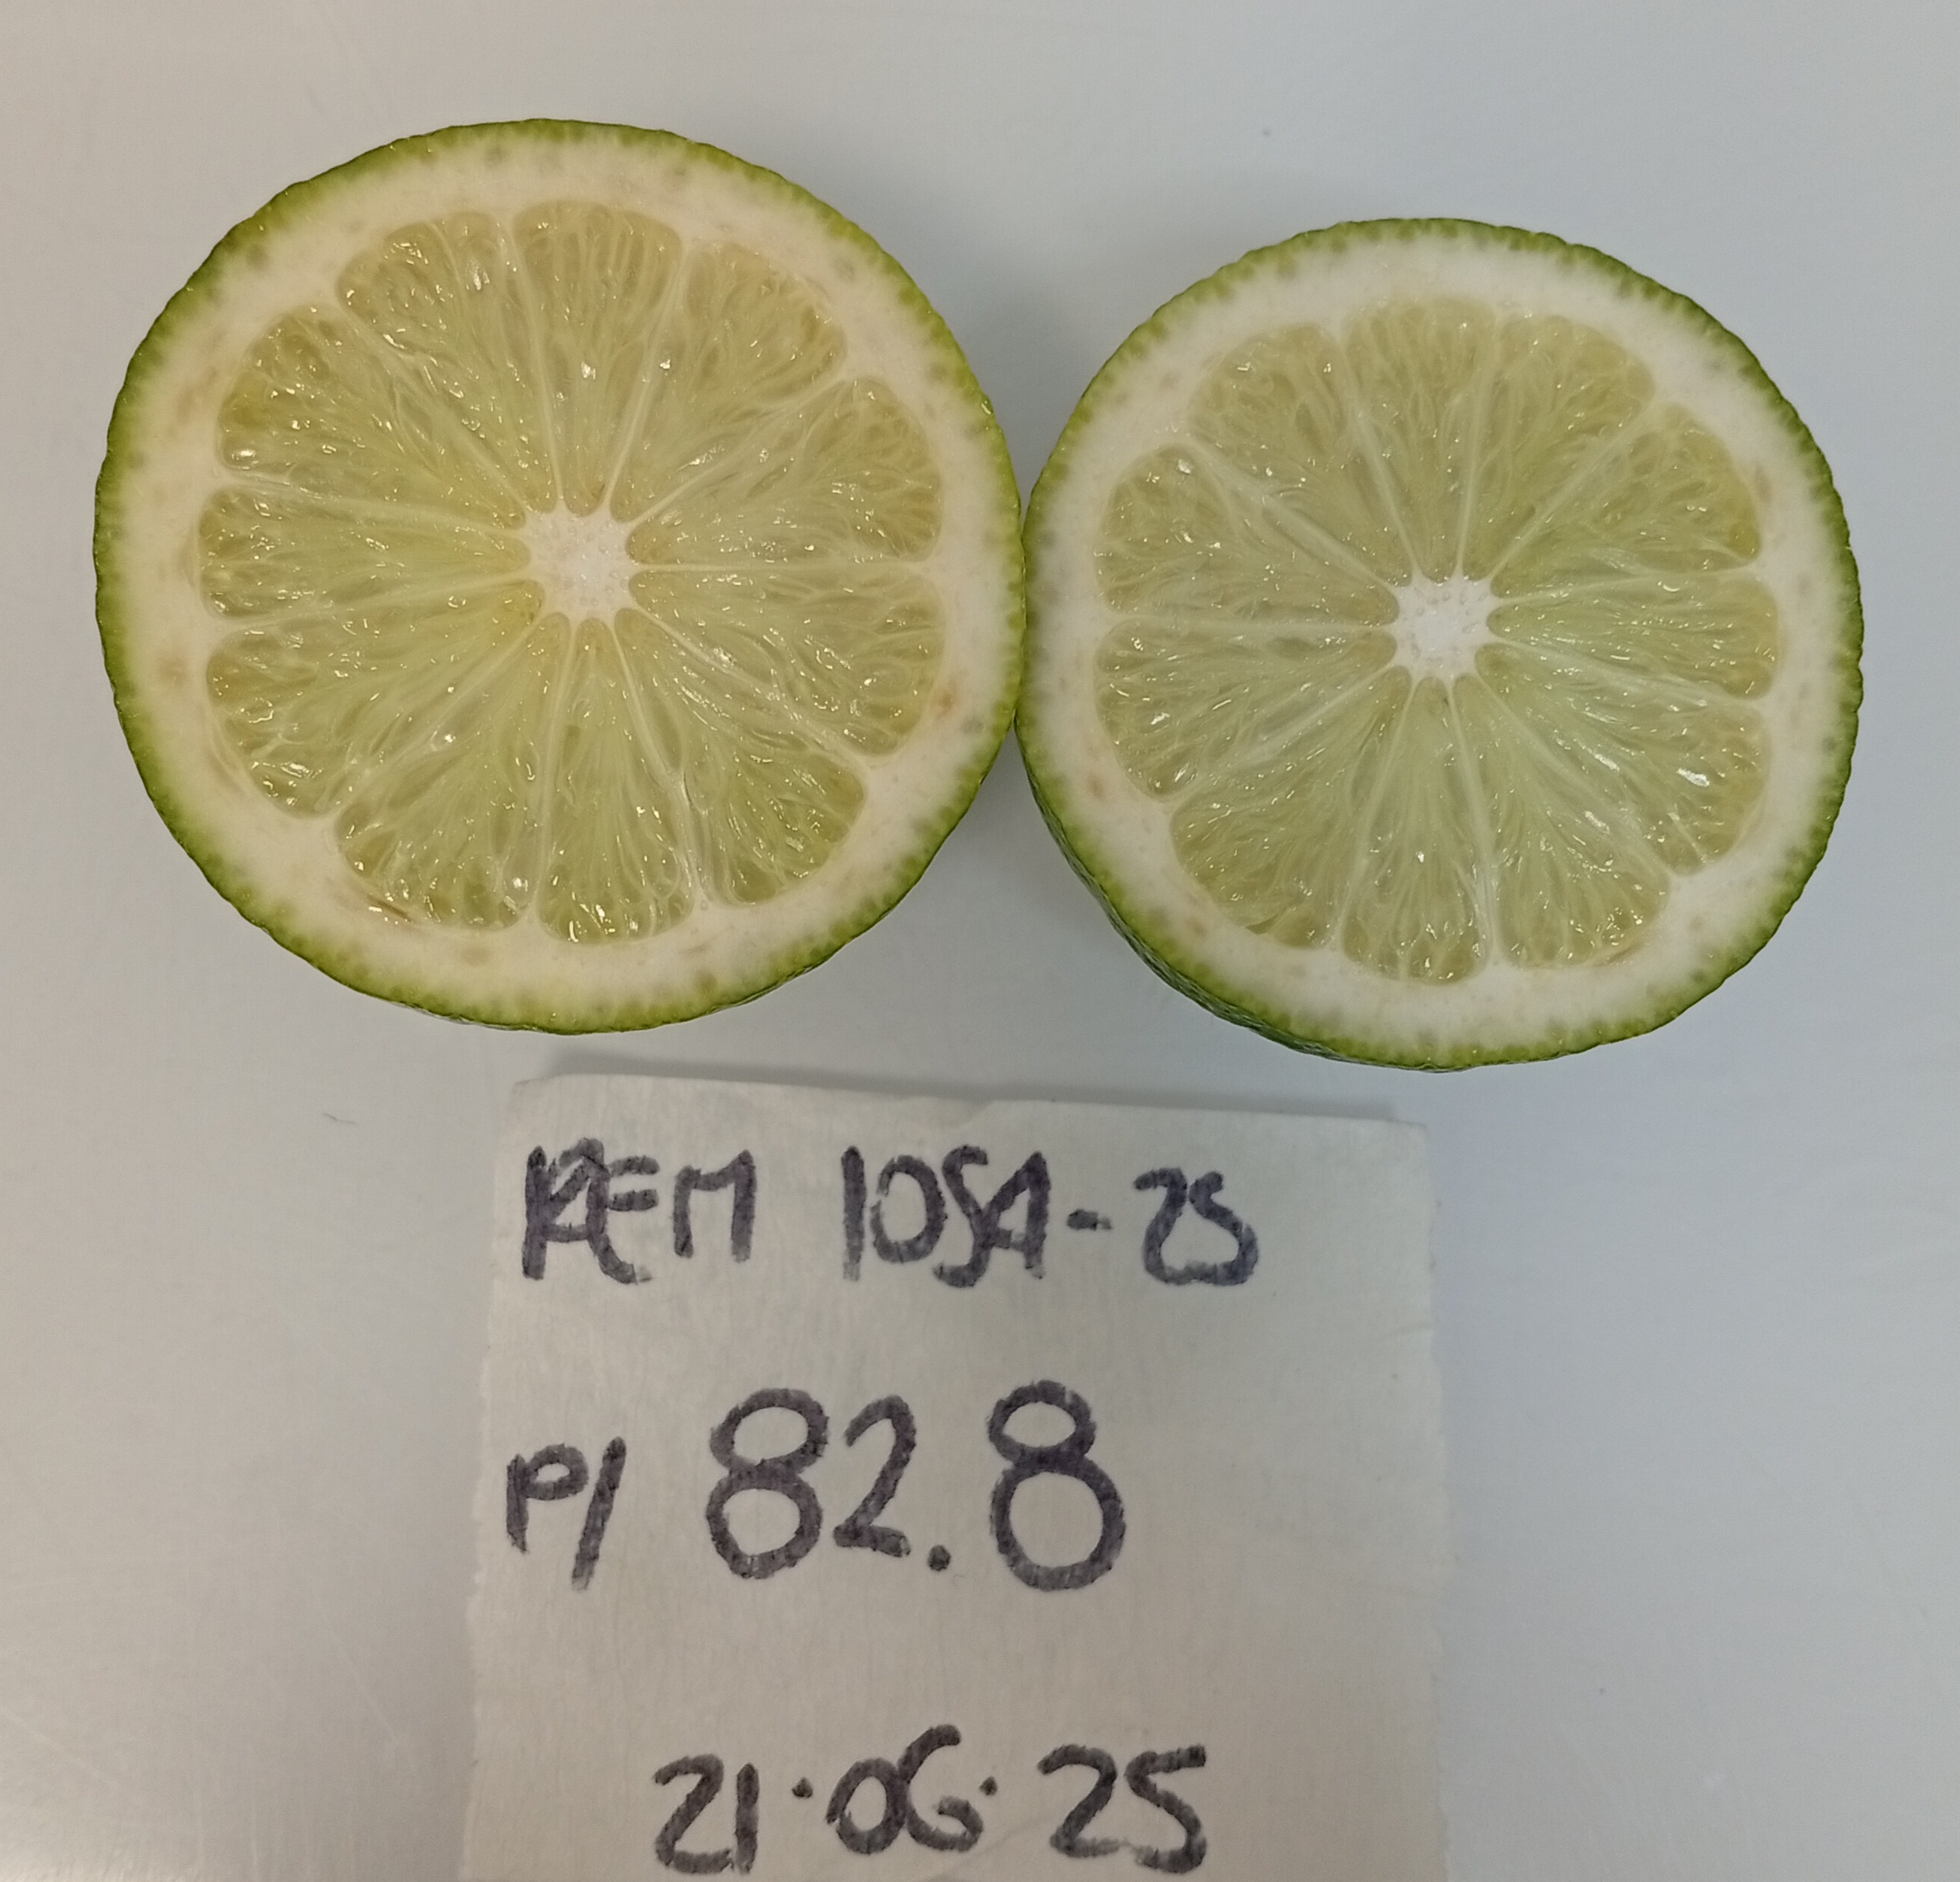 REM 1054-25
P/ 82.8
21·06·25